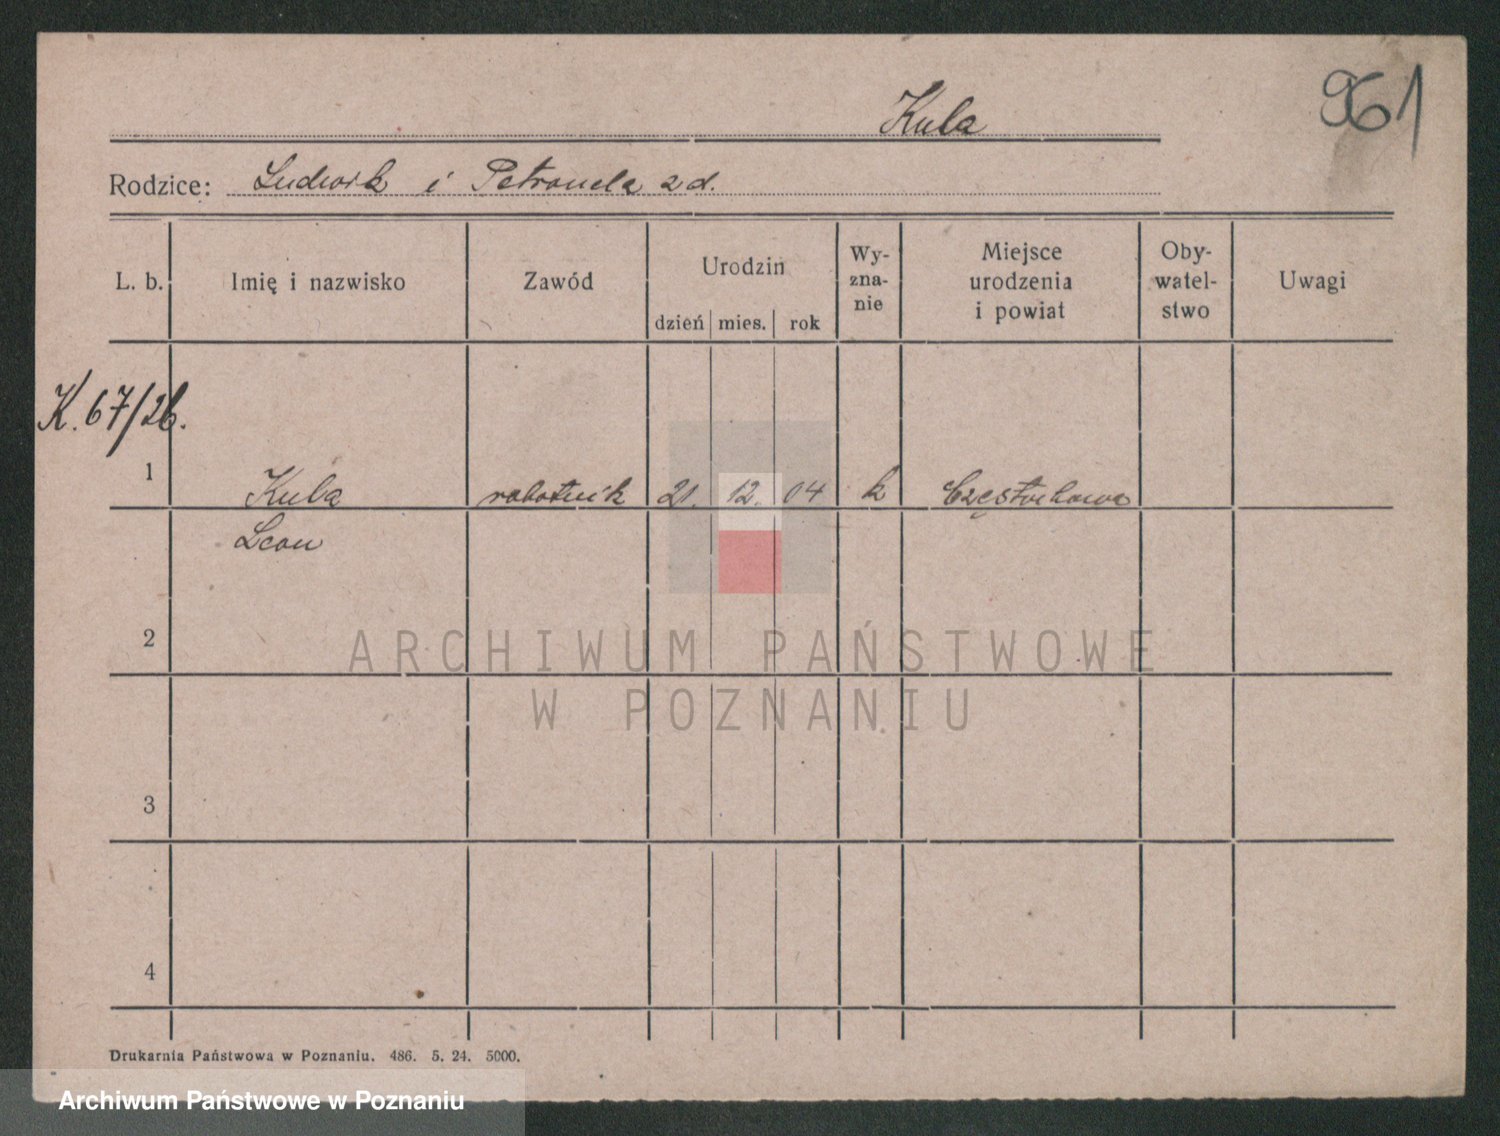 961
Kula
Rodzice: Ludwik i Petronela zd.
L. b.
Imię i nazwisko
Zawód
Urodzin
dzień mies. rok
Wy-
zna-
nie
Miejsce
urodzenia
i powiat
Oby-
watel-
stwo
Uwagi
K. 67/26.
1 Kula robotnik 21. 12. 04 k Częstochowa
Leon
2
3
4
ARCHIWUM PAŃSTWOWE
W POZNANIU
Drukarnia Państwowa w Poznaniu. 486. 5. 24. 5000.
Archiwum Państwowe w Poznaniu